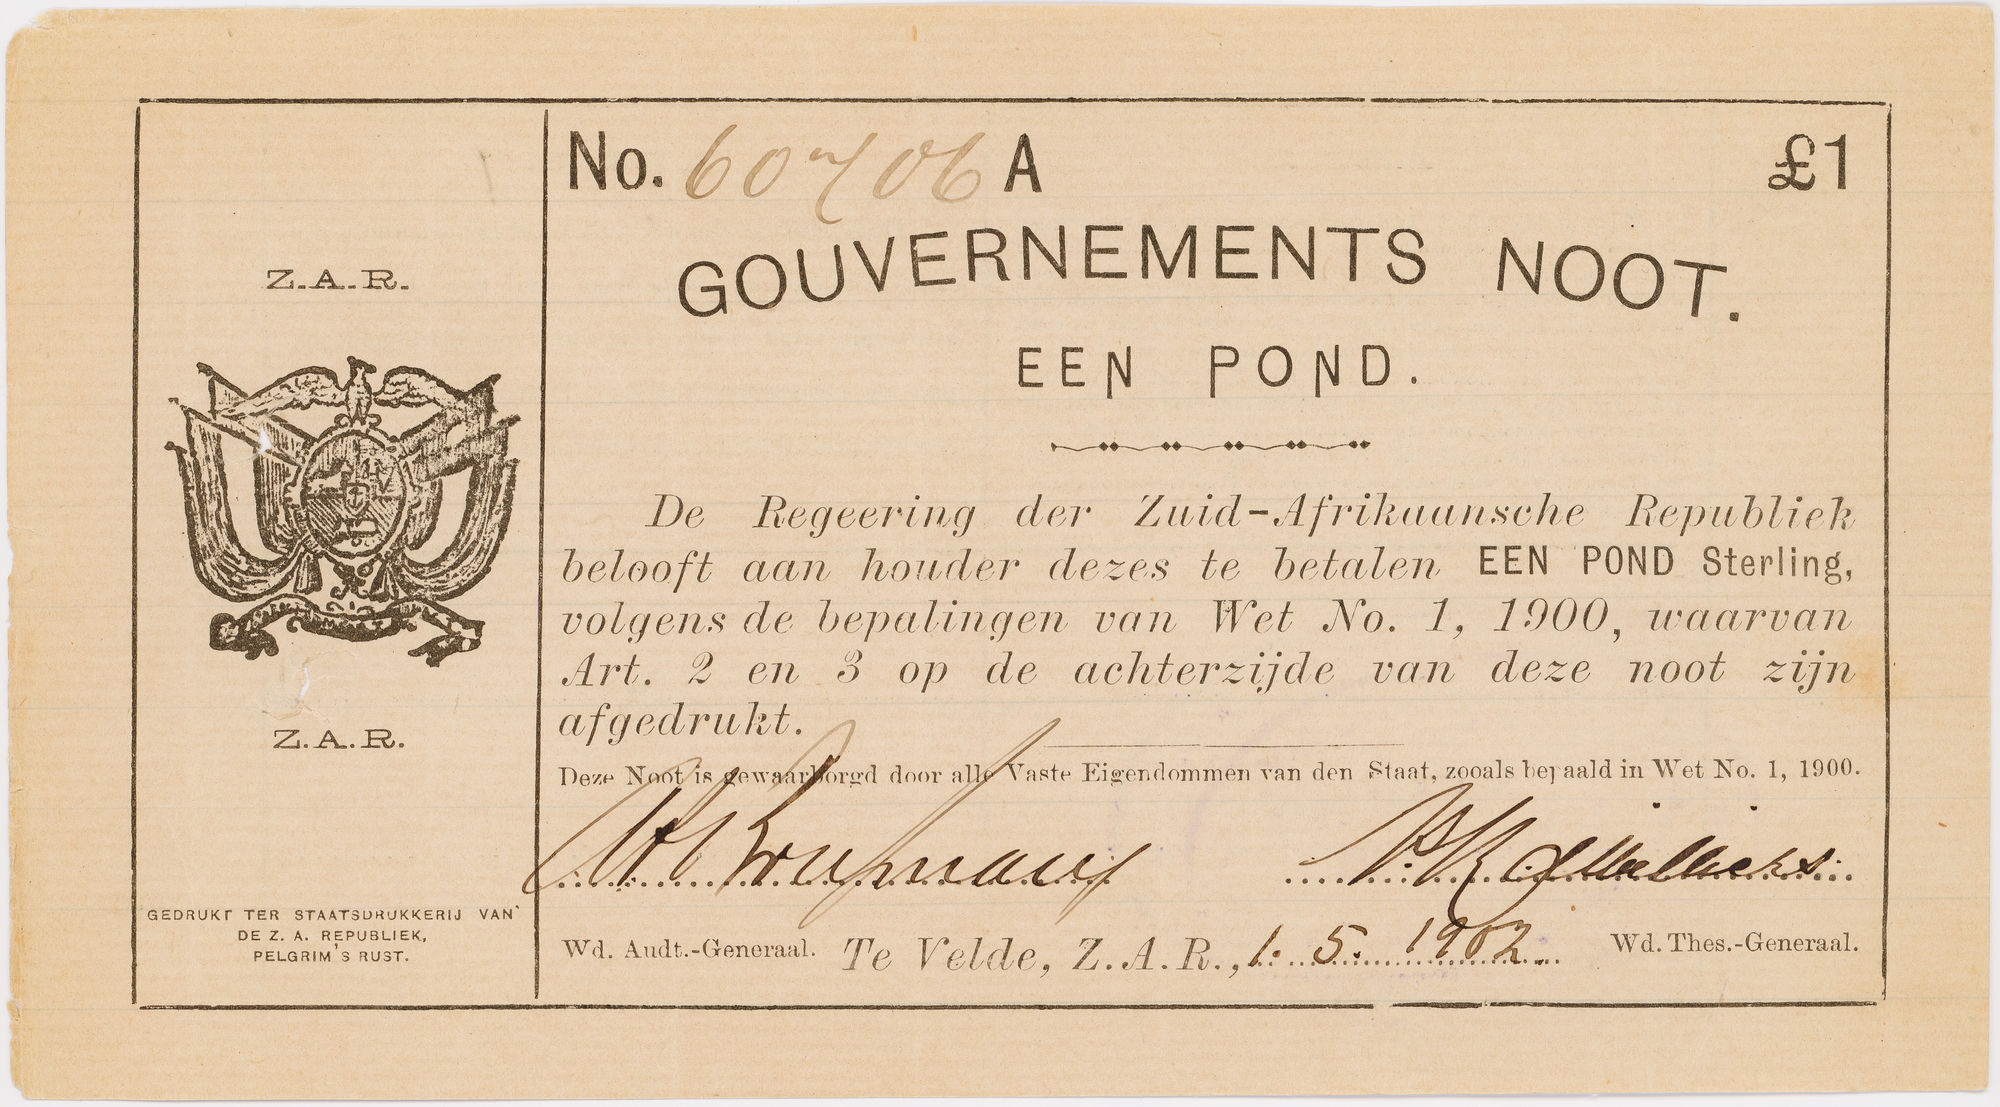 No. 60706 A £1
GOUVERNEMENTS NOOT.
EEN POND.
De Regeering der Zuid-Afrikaansche Republiek
belooft aan houder dezes te betalen EEN POND Sterling,
volgens de bepalingen van Wet No. 1, 1900, waarvan
Art. 2 en 3 op de achterzijde van deze noot zijn
afgedrukt.
Deze Noot is gewaarborgd door alle Vaste Eigendommen van den Staat, zooals bepaald in Wet No. 1, 1900.
Wd. Audt.-Generaal. Te Velde, Z.A.R., 1. 5. 1902. Wd. Thes.-Generaal.
Z.A.R.
Z.A.R.
GEDRUKT TER STAATSDRUKKERIJ VAN
DE Z. A. REPUBLIEK,
PELGRIM'S RUST.